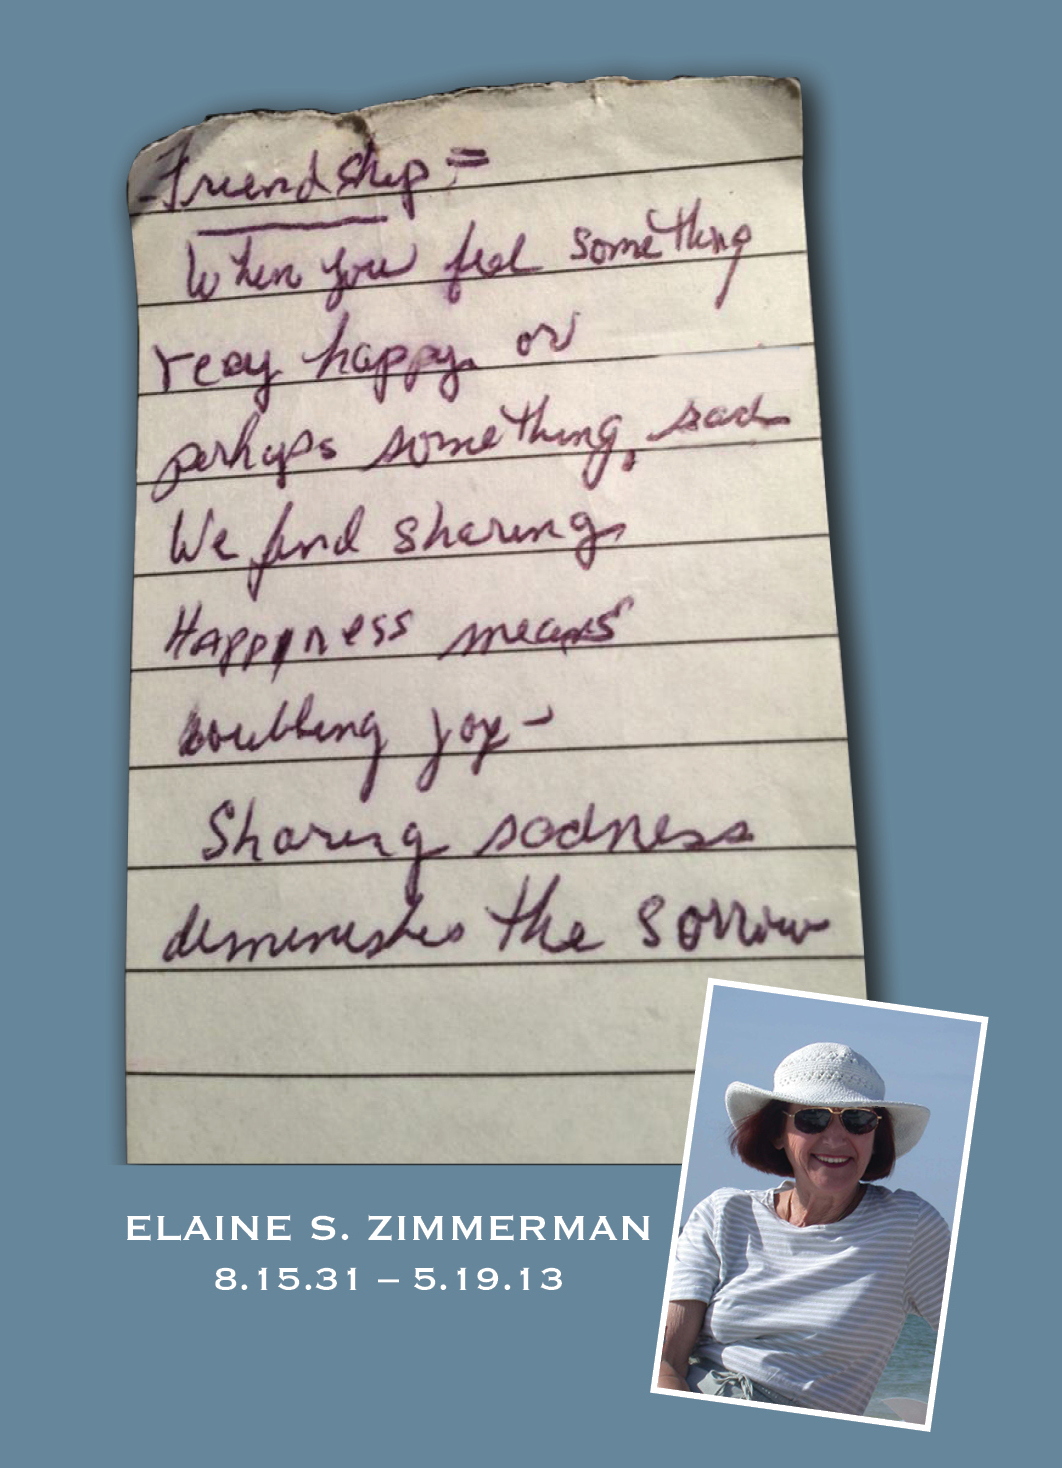 Friendship =
When you feel something
very happy or
perhaps something, sad
We find sharing
Happyness means
doubling joy -
Sharing sadness
diminishes the sorrow
ELAINE S. ZIMMERMAN
8.15.31 – 5.19.13